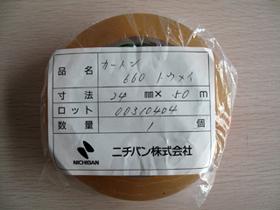 品名 カートン
660 トウメイ
寸法 24 mm × 50 m
ロット 00310404
数量 1 個
NICHIBAN ニチバン株式会社